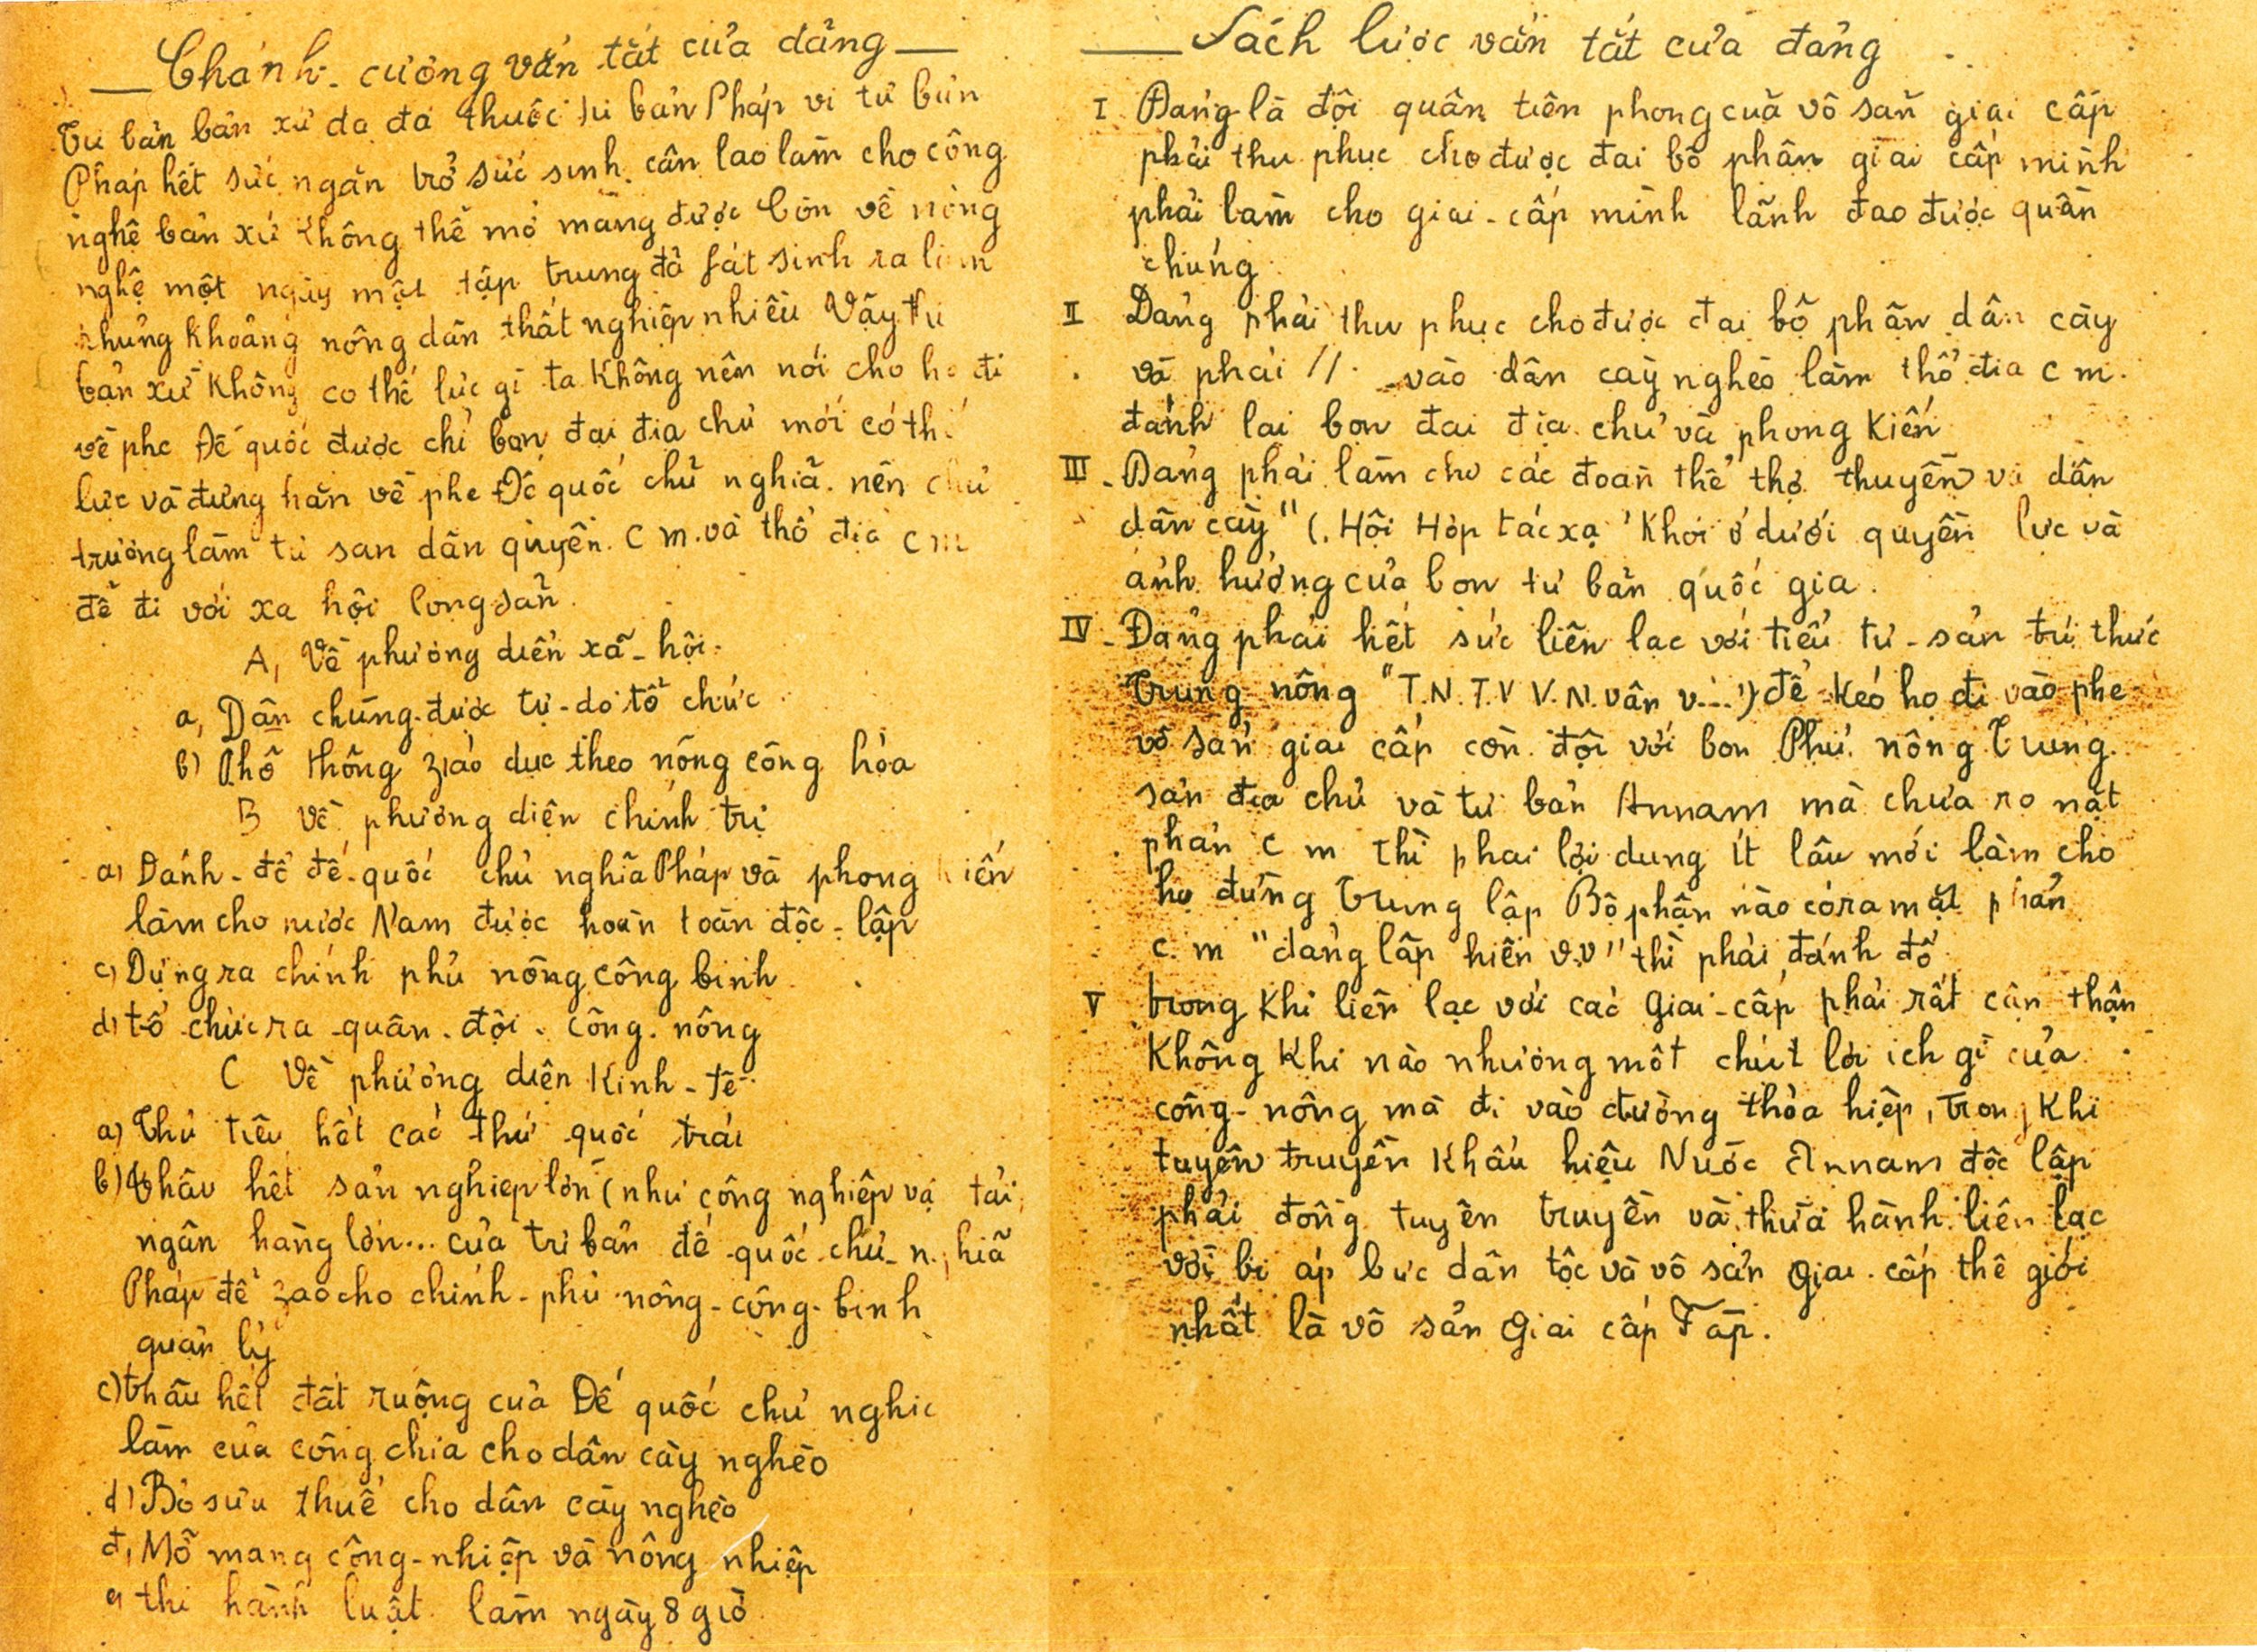 Chánh cương vắn tắt của đảng
Tư bản bản xứ đạ đã thuộc tư bản Pháp vì tư bản
Pháp hết sức ngăn trở sức sinh cần lao làm cho công
nghệ bản xứ không thể mở mang được Còn về nông
nghệ một ngày một tập trung đã fát sinh ra
khủng khoảng nông dân thất nghiệp nhiều Vậy tư
bản xứ không co thế lực gì ta không nên nói cho họ đi
về phe Đế quốc được chỉ bọn đại địa chủ mới có thế
lực và đứng hẳn về phe Đế quốc chủ nghiã. nên chủ
trương làm tư san dân quyền. C m. và thổ địa c m
để đi với xa hội cộng sản.
A, Về phương diển xã-hội.
a, Dân chúng được tự-do tổ chức
b) Phổ thông záo dục theo nông công hóa
B Về phương diện chính trị
a) Đánh-đổ đế-quốc chủ nghĩa Pháp và phong kiến
làm cho nước Nam được hoàn toàn độc-lập
c) Dựng ra chính phủ nông công binh
d) tổ-chức ra quân-đội-công-nông
C Về phương diện Kinh-Tế
a) Thủ tiêu hết các thứ quốc trái
b) thâu hết sản nghiep lớn (như công nghiệp vạ tải,
ngân hàng lớn... của tư bản đế-quốc-chủ-nghiã
Pháp để zao cho chính-phủ nông-công-binh
quản lý
c) thâu hết đất ruộng của Đế quốc chủ nghia
làm của công chia cho dân cày nghèo
d) Bỏ sưu thuế cho dân cày nghèo
đ, Mở mang công-nhiệp và nông nhiệp
e, thi hành luật làm ngày 8 giờ
Sách lược vắn tắt của đảng
I Đảng là đội quân tiên phong của vô sản giai cấp
phải thu phục cho được đại bộ phận giai cấp mình
phải làm cho giai-cấp mình lãnh đạo được quần
chúng
II Đảng phải thu phục cho được đại bộ phận dân cày
và phải // vào dân cày nghèo làm thổ địa c m.
đánh lại bọn đai địa chủ và phong kiến
III-Đảng phải làm cho các đoàn thể thợ thuyền và dân
dân cày "(. Hội Hợp tác xạ ' khỏi ở dưới quyền lực và
ảnh hưởng của bọn tư bản quốc gia.
IV-Đảng phải hết sức liên lạc với tiểu tư-sản trí thức
Trung nông "T.N. T.V V.N. vân v...") để kéo họ đi vào phe
vô sản giai cấp còn đội với bọn Phú nông Trung
sản địa chủ và tư bản Annam mà chưa rọ mặt
phản c m thì phai lợi dung ít lâu mới làm cho
họ đứng trung lập Bộ phận nào có ra mặt phản
c. m "đảng lập hiến v.v" thì phải đánh đổ
V trong khi liên lạc với các giai-cấp phải rất cân thận
không khi nào nhường một chút lợi ich gì của
công-nông mà đi vào đường thỏa hiệp, trong khi
tuyên truyền khẩu hiệu Nước Annam độc lập
phải đồng tuyên truyền và thừa hành liên lạc
với bị áp bưc dân tộc và vô sản giai-cấp thế giới
nhất là vô sản giai cấp Fáp.